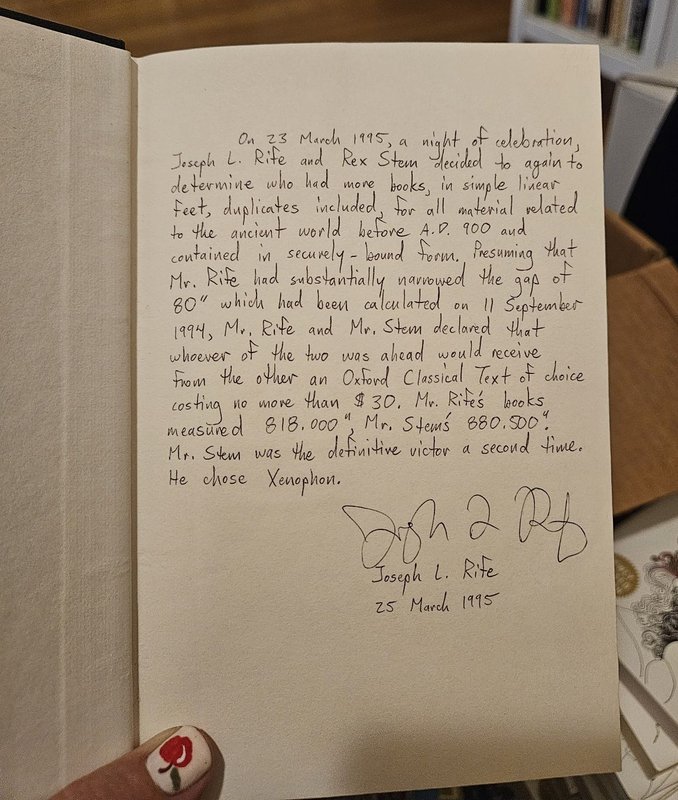 On 23 March 1995, a night of celebration,
Joseph L. Rife and Rex Stem decided to again to
determine who had more books, in simple linear
feet, duplicates included, for all material related
to the ancient world before A.D. 900 and
contained in securely-bound form. Presuming that
Mr. Rife had substantially narrowed the gap of
80" which had been calculated on 11 September
1994, Mr. Rife and Mr. Stem declared that
whoever of the two was ahead would receive
from the other an Oxford Classical Text of choice
costing no more than $30. Mr. Rife's books
measured 818.000", Mr. Stem's 880.500".
Mr. Stem was the definitive victor a second time.
He chose Xenophon.
Joseph L. Rife
Joseph L. Rife
25 March 1995